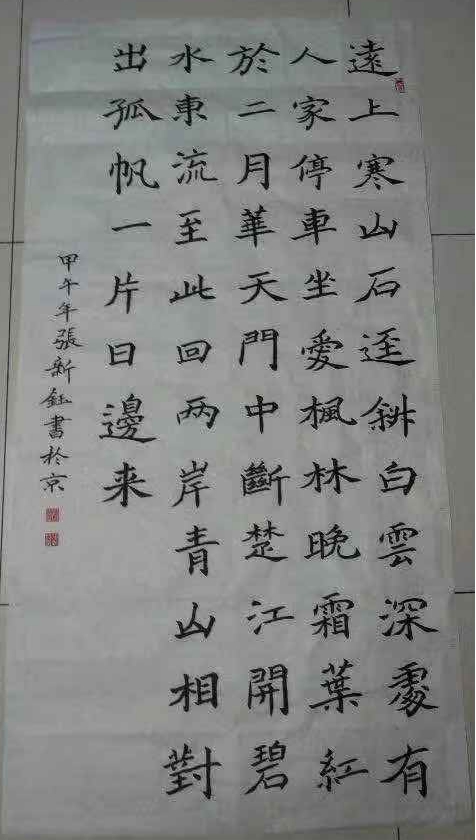 遠上寒山石逕斜白雲深處有
人家停車坐愛楓林晚霜葉紅
於二月華天門中斷楚江開碧
水東流至此回两岸青山相對
出孤帆一片日邊来
甲午年張新鈺書於京